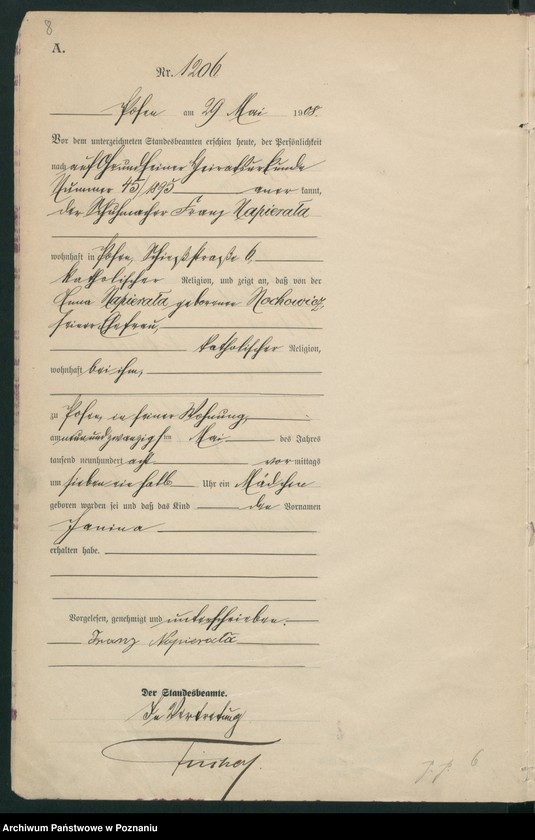 8
A.
Nr. 1206
Posen am 29 Mai 1908.
Vor dem unterzeichneten Standesbeamten erschien heute, der Persönlichkeit
nach auf Grund seiner Heiratsurkunde
Nummer 45/1895 anerkannt,
der Schuhmacher Franz Napierata
wohnhaft in Posen, Schießstraße 6,
katholischer Religion, und zeigt an, daß von der
Anna Napierata geborenen Nochowicz,
seiner Ehefrau,
katholischer Religion,
wohnhaft bei ihm,
zu Posen in seiner Wohnung,
am neunundzwanzigsten Mai des Jahres
tausend neunhundert acht vormittags
um sieben ein halb Uhr ein Mädchen
geboren worden sei und daß das Kind den Vornamen
Janina
erhalten habe.
Vorgelesen, genehmigt und unterschrieben.
Franz Napierata
Der Standesbeamte.
In Vertretung
6
Archiwum Państwowe w Poznaniu